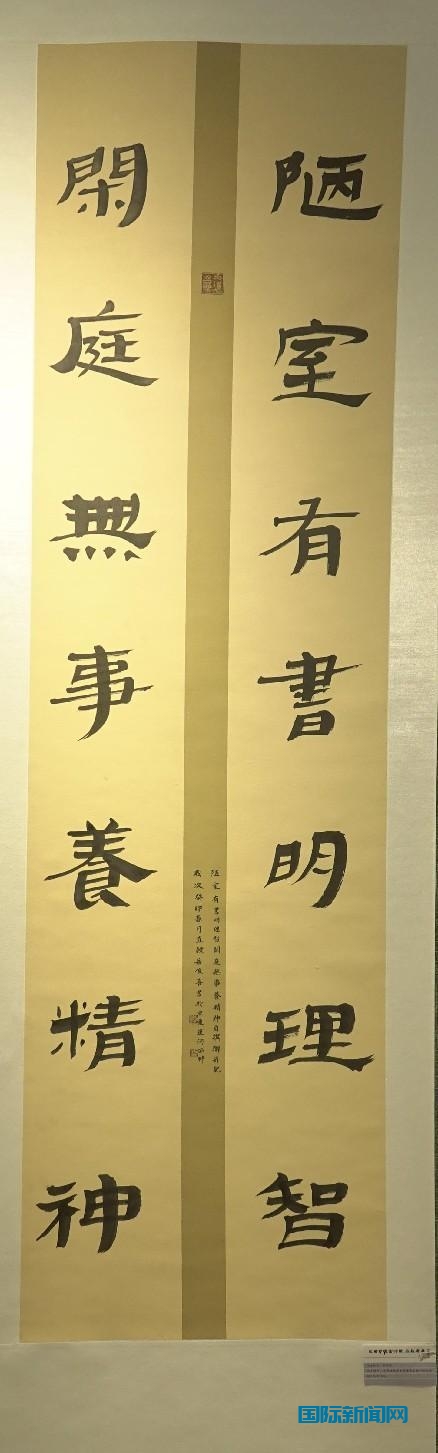 陋室有書明理智
閑庭無事養精神
陋室有書明理智閑庭無事養精神自撰聯并記
歲次癸卯
国际新闻网